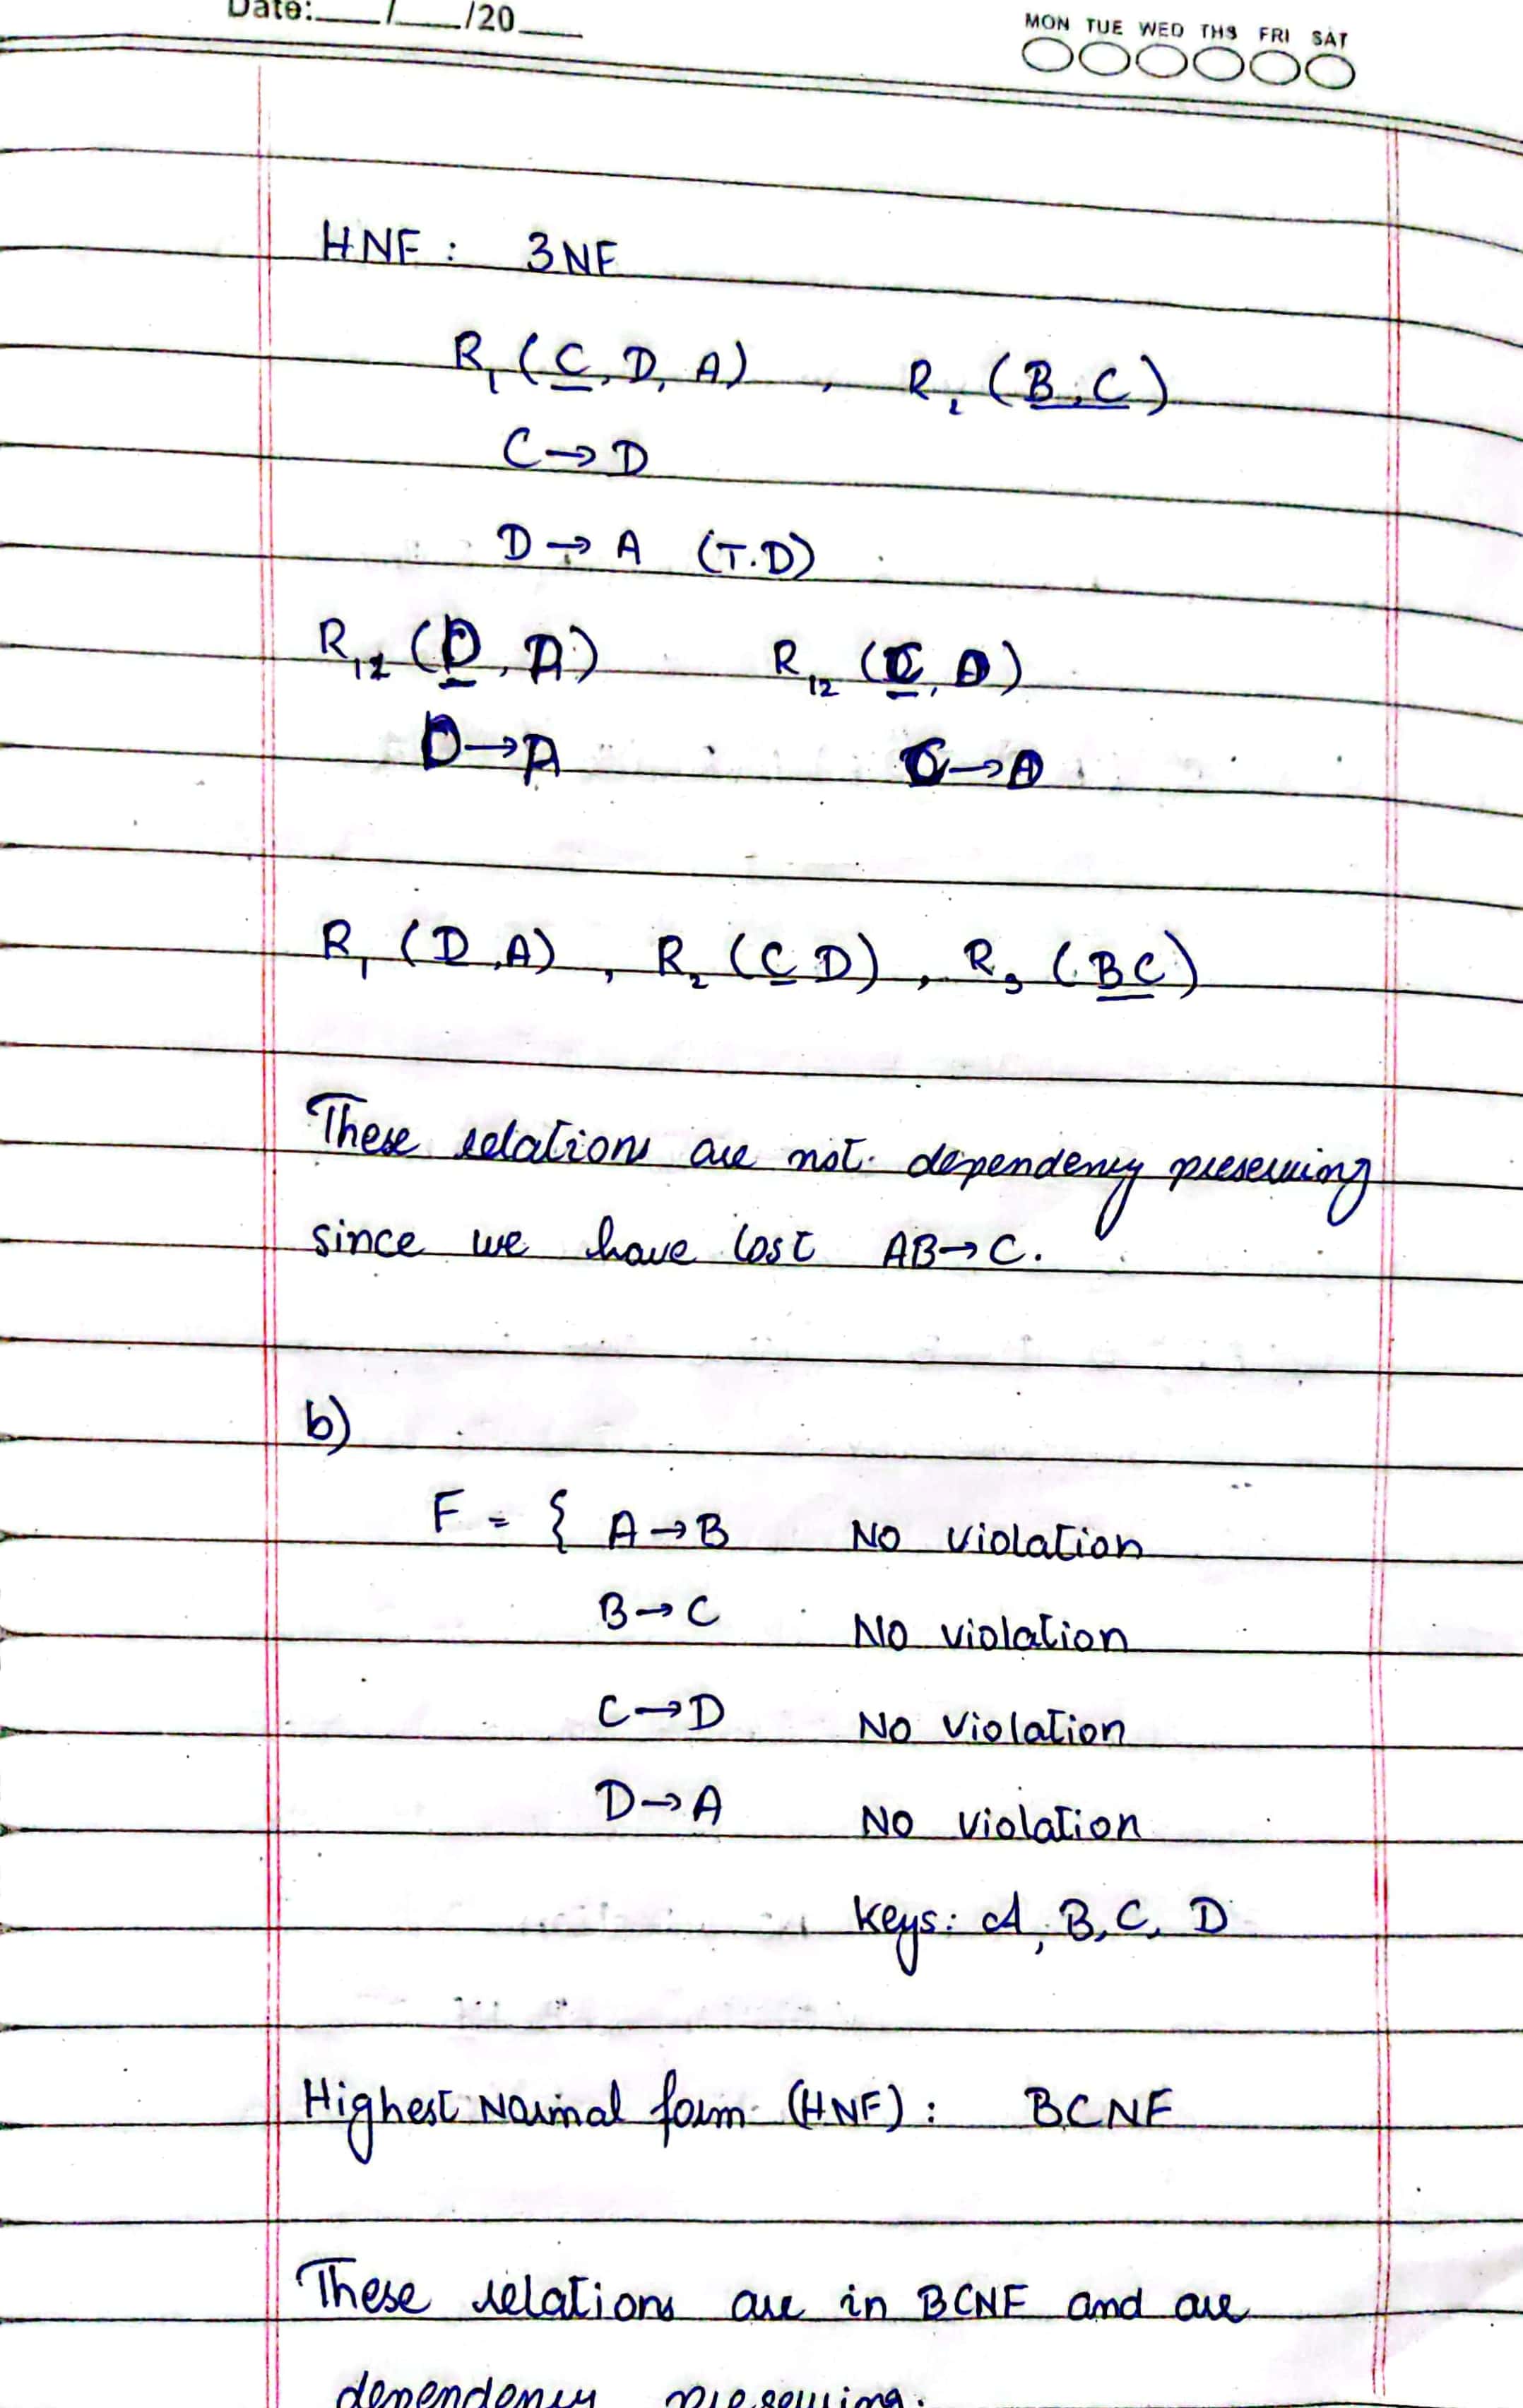 Date:___/___/20___
MON TUE WED THS FRI SAT
HNF : 3NF
R₁ (C, D, A) , R₂ (B, C)
C→D
D→A (T.D)
R₁₂ (D, A) R₁₂ (C, D)
D→A
R₁ (D, A) , R₂ (C D) , R₃ (BC)
These relations are not dependency preserving
since we have lost AB→C.
b)
F = { A→B No violation
B→C No violation
C→D No violation
D→A No violation
keys: A, B, C, D
Highest Normal form (HNF) : BCNF
These relations are in BCNF and are
dependency preserving.